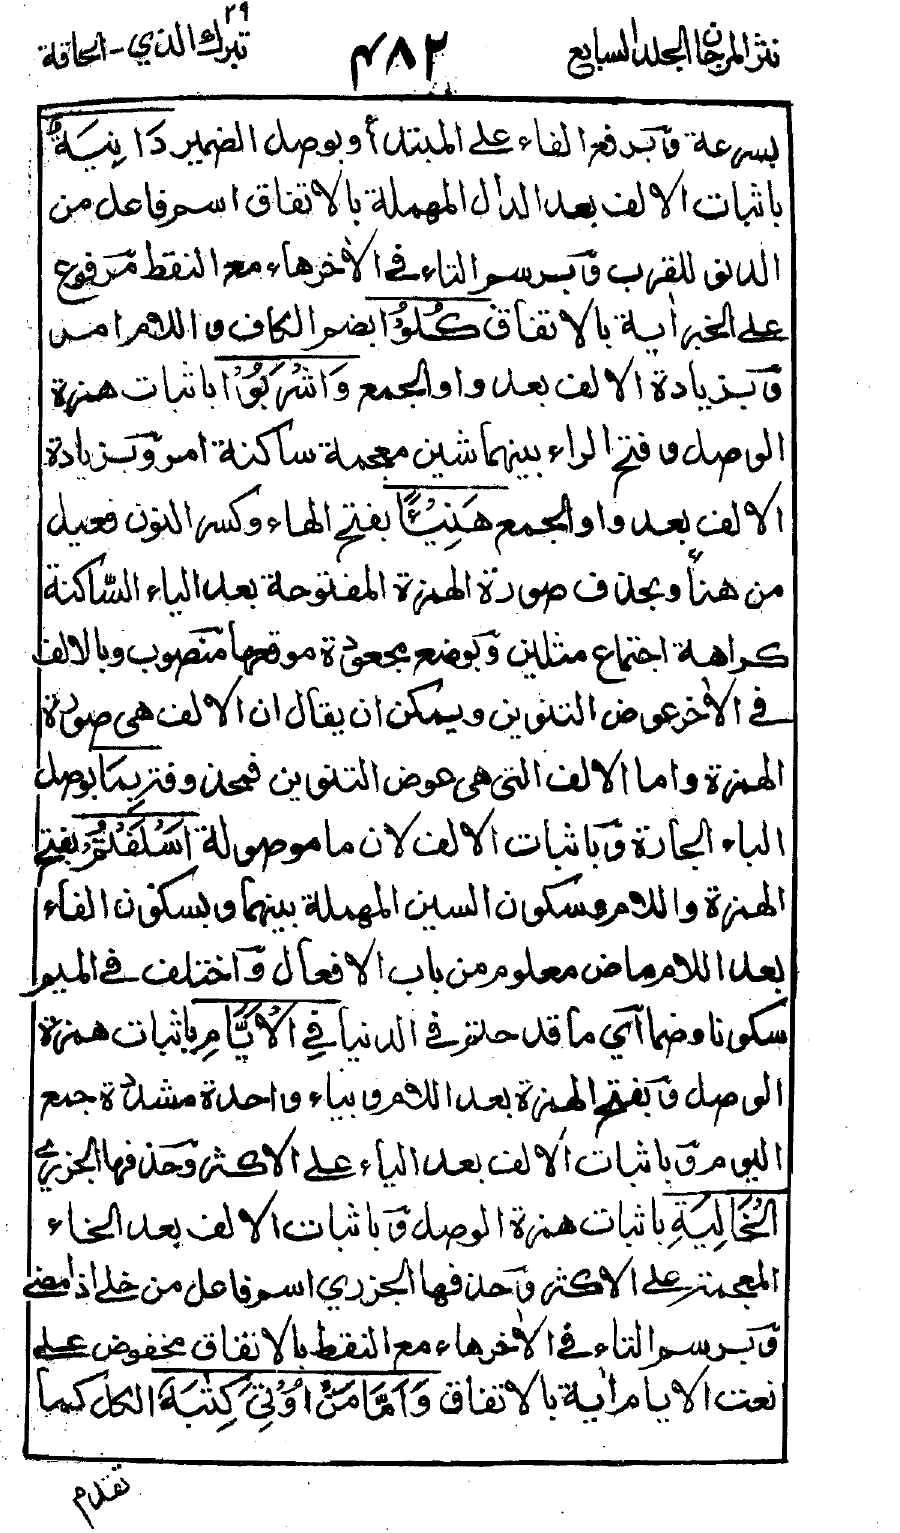 نثر المرجان الجلد السابع
٤٨٢
تبرك الذي - الحاقة
٢٩
بسرعة وبرفع الفاء على المبتدأ وبوصل الضمير دَانِيَةٌ
باثبات الالف بعد الدال المهملة بالاتفاق اسم فاعل من
الدنو للقرب وبرسم التاء في الآخر هاء مع النقط مرفوع
على الخبر اٰية بالاتفاق كُلُوْا بضم الكاف واللام امر
وبزيادة الالف بعد واو الجمع وَاشْرَبُوْا باثبات همزة
الوصل وفتح الراء بينهما شين معجمة ساكنة امر وبزيادة
الالف بعد واو الجمع هَنِيْٓـًٔا بفتح الهاء وكسر النون فعيل
من هنأ وبحذف صورة الهمزة المفتوحة بعد الياء الساكنة
كراهة اجتماع مثلين وبوضع مجعودة موقعها منصوب وبالالف
في الآخر عوض التنوين ويمكن ان يقال ان الالف هي صورة
الهمزة واما الالف التي هي عوض التنوين فمحذوفة بِمَا بوصل
الباء الجارة وباثبات الالف لان ما موصولة اَسْلَفْتُمْ بفتح
الهمزة واللام وسكون السين المهملة بينهما وبسكون الفاء
بعد اللام ماض معلوم من باب الافعال واختلف في الميم
سكونا وضما اي ما قدمتم في الدنيا فِي الْاَيَّامِ باثبات همزة
الوصل وبفتح الهمزة بعد اللام وبياء واحدة مشددة جمع
اليوم وباثبات الالف بعد الياء على الاكثر وحذفها الجزري
الْخَالِيَةِ باثبات همزة الوصل وباثبات الالف بعد الخاء
المعجمة على الاكثر وحذفها الجزري اسم فاعل من خلا اذا مضى
وبرسم التاء في الآخر هاء مع النقط بالاتفاق مخفوض على
نعت الايام اٰية بالاتفاق وَاَمَّا مَنْ اُوْتِيَ كِتٰبَهٗ الكل كما
تقدم